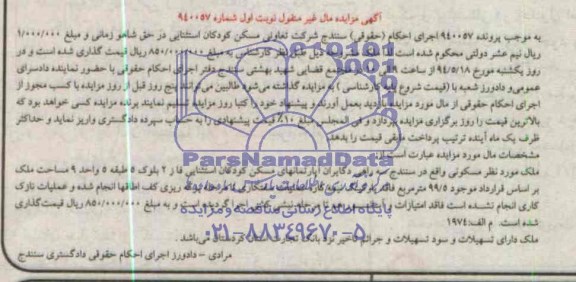 آگهی مزایده مال غیر منقول نوبت اول شماره ۹۴۰۰۵۷
به موجب پرونده ۹۴۰۰۵۷ اجرای احکام (حقوقی) سنندج شرکت تعاونی مسکن کودکان استثنایی در حق شاهو زمانی و مبلغ ۱/۰۰۰/۰۰۰
ریال نیم عشر دولتی محکوم شده است ذیل طبق نظر کارشناسی به مبلغ ۸۵۰/۰۰۰/۰۰۰ ریال قیمت گذاری شده است و در
روز یکشنبه مورخ ۹۴/۵/۱۸ از ساعت مجتمع قضایی شهید بهشتی سنندج دفتر اجرای احکام حقوقی با حضور نماینده دادسرای
عمومی و دادورز شعبه با (قیمت شروع کارشناسی) به مزایده گذاشته می‌شود طالبین می‌توانند پنج روز قبل از روز مزایده با کسب مجوز از
اجرای احکام حقوقی از مال مورد مزایده بازدید بعمل آورند و پیشنهاد خود را کتبا روز مزایده تسلیم نمایند برنده مزایده کسی خواهد بود که
بالاترین قیمت را روز برگزاری مزایده بپردازد و فی المجلس مبلغ ۱۰٪ قیمت پیشنهادی را به حساب سپرده دادگستری واریز نماید و حداکثر
ظرف یک ماه آینده ترتیب پرداخت مابقی قیمت را بدهد
مشخصات مال مورد مزایده عبارت است
ParsNamadData
ملک مورد نظر مسکونی واقع در سنندج آپارتمانهای مسکن کودکان استثنایی فاز ۲ بلوک ۵ طبقه ۵ واحد ۹ مساحت ملک
بر اساس قرارداد موجود ۹۹/۵ مترمربع فاقد ریزی کف اطاقها انجام شده و عملیات نازک
کاری انجام نشده است فاقد امتیازات اجرا گردیده است و به مبلغ ۸۵۰/۰۰۰/۰۰۰ ریال قیمت‌گذاری
پایگاه اطلاع رسانی مناقصه و مزایده
شده است. م الف: ۱۹۷۴
ملک دارای تسهیلات و سود تسهیلات و جرائم تاخیر نزد بانک تجارت استان کردستان می‌باشد.
۰۲۱-۸۸۳۴۹۶۷۰-۵
مرادی - دادورز اجرای احکام حقوقی دادگستری سنندج